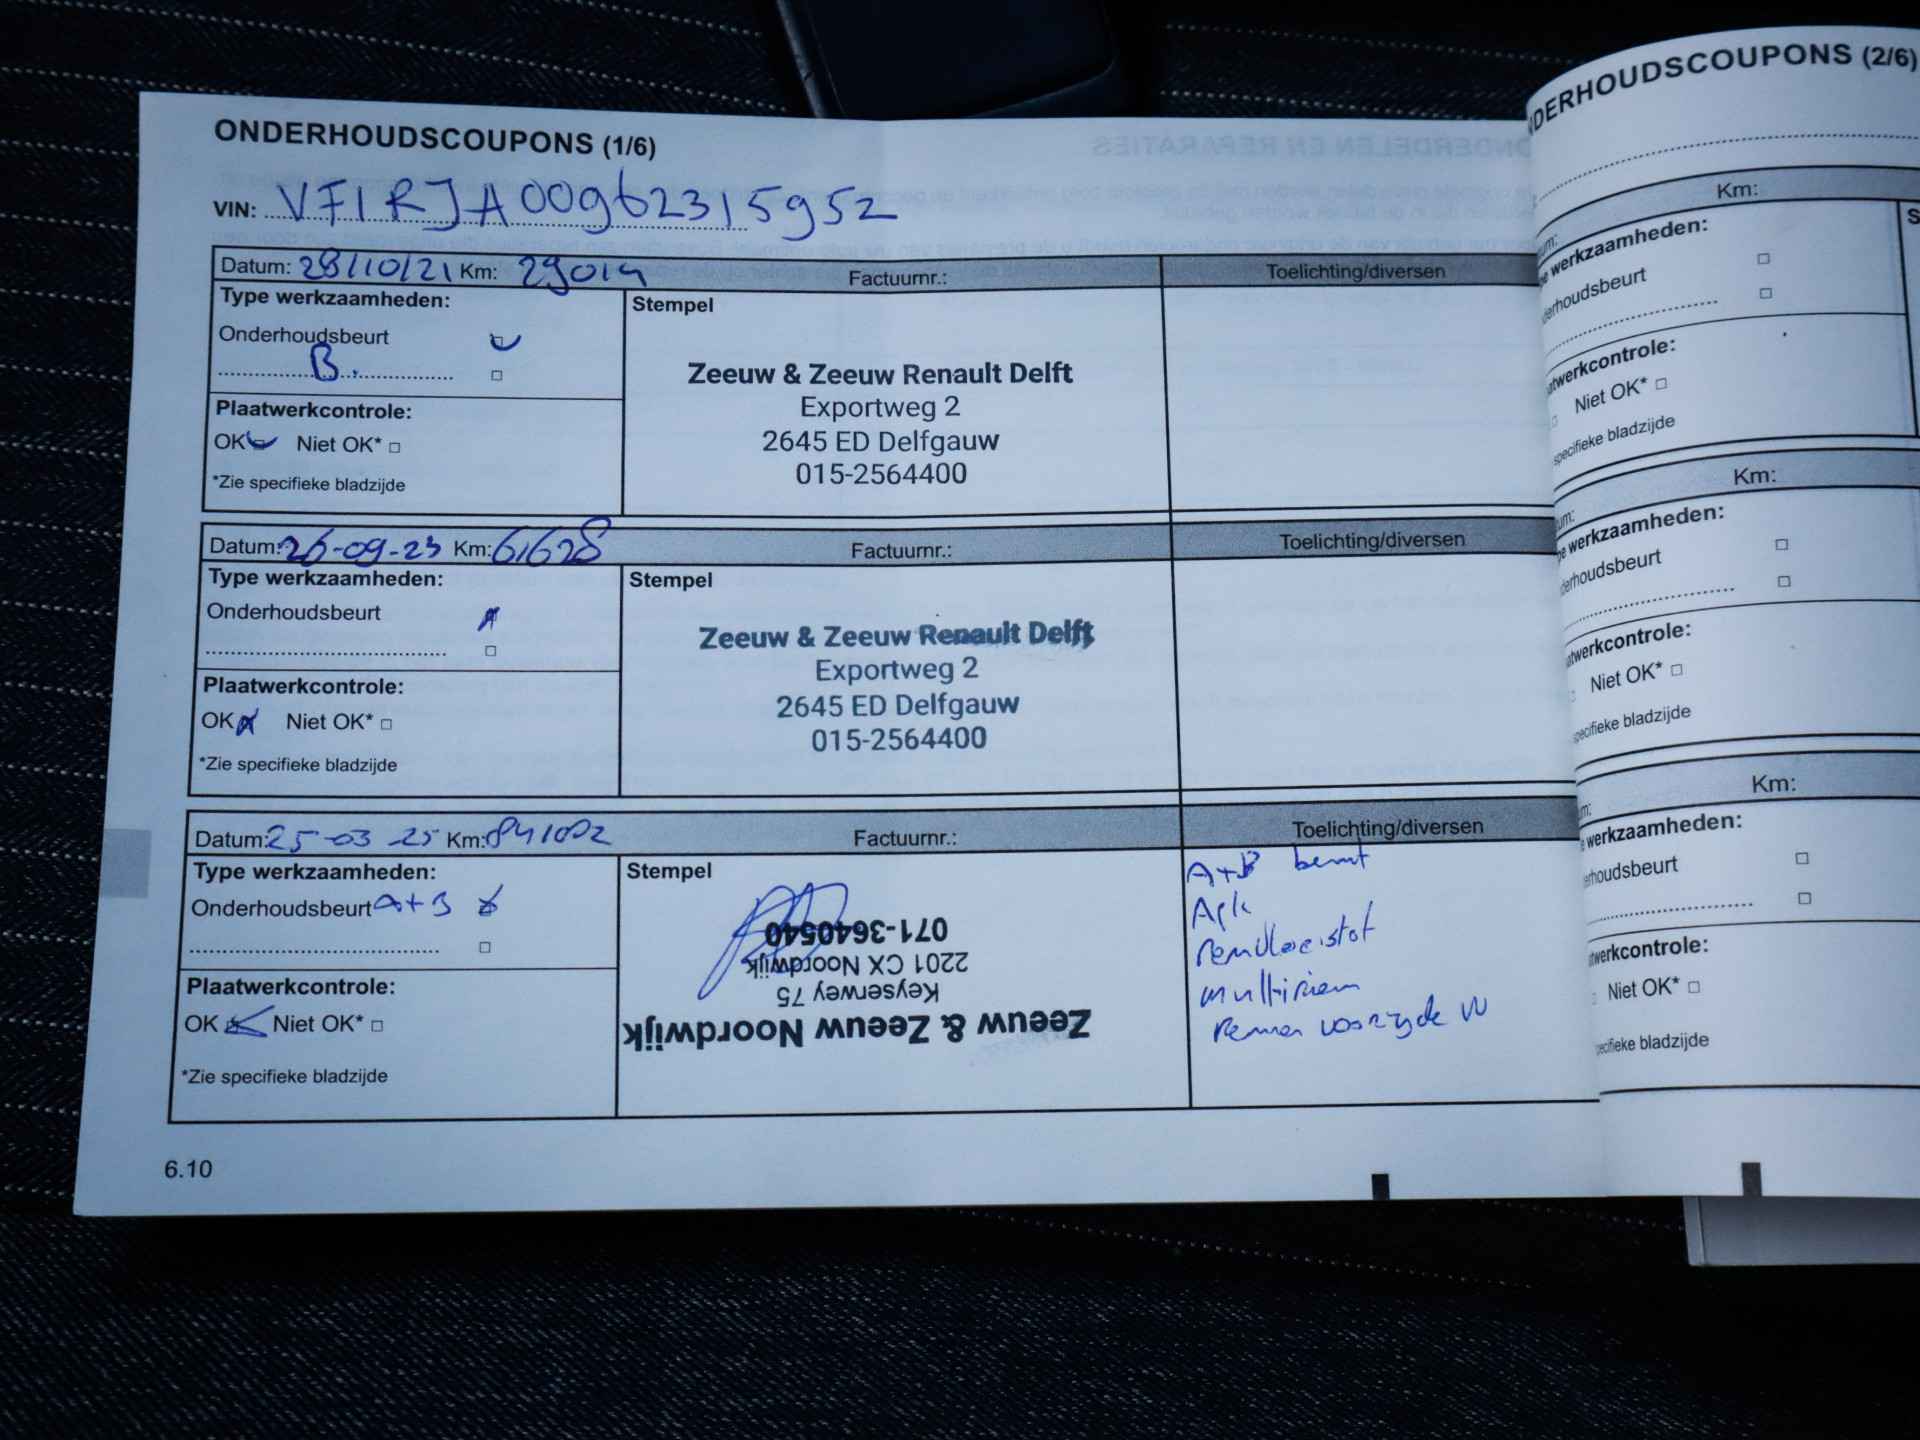 ONDERHOUDSCOUPONS (1/6)
VIN: VF1RJA00962315952
Datum: 28/10/21 Km: 29014 Factuurnr.: Toelichting/diversen
Type werkzaamheden:
Stempel
Onderhoudsbeurt
B.
Plaatwerkcontrole:
OK Niet OK*
*Zie specifieke bladzijde
Zeeuw & Zeeuw Renault Delft
Exportweg 2
2645 ED Delfgauw
015-2564400
Datum: 26-09-23 Km: 61628 Factuurnr.: Toelichting/diversen
Type werkzaamheden:
Stempel
Onderhoudsbeurt
Plaatwerkcontrole:
OK Niet OK*
*Zie specifieke bladzijde
Zeeuw & Zeeuw Renault Delft
Exportweg 2
2645 ED Delfgauw
015-2564400
Datum: 25-03-25 Km: Factuurnr.: Toelichting/diversen
Type werkzaamheden:
Stempel
Onderhoudsbeurt A+B
Plaatwerkcontrole:
OK Niet OK*
*Zie specifieke bladzijde
Zeeuw & Zeeuw Noordwijk
Keyserwey 75
2201 CX Noordwijk
071-3640540
A+B beurt
Apk
remvloeistof
multiriem
remmen voorzijde VV
6.10
NDERHOUDSCOUPONS (2/6)
Km:
um:
e werkzaamheden:
derhoudsbeurt
atwerkcontrole:
Niet OK*
specifieke bladzijde
Km:
um:
e werkzaamheden:
derhoudsbeurt
atwerkcontrole:
Niet OK*
specifieke bladzijde
Km:
m:
e werkzaamheden:
erhoudsbeurt
atwerkcontrole:
Niet OK*
pecifieke bladzijde